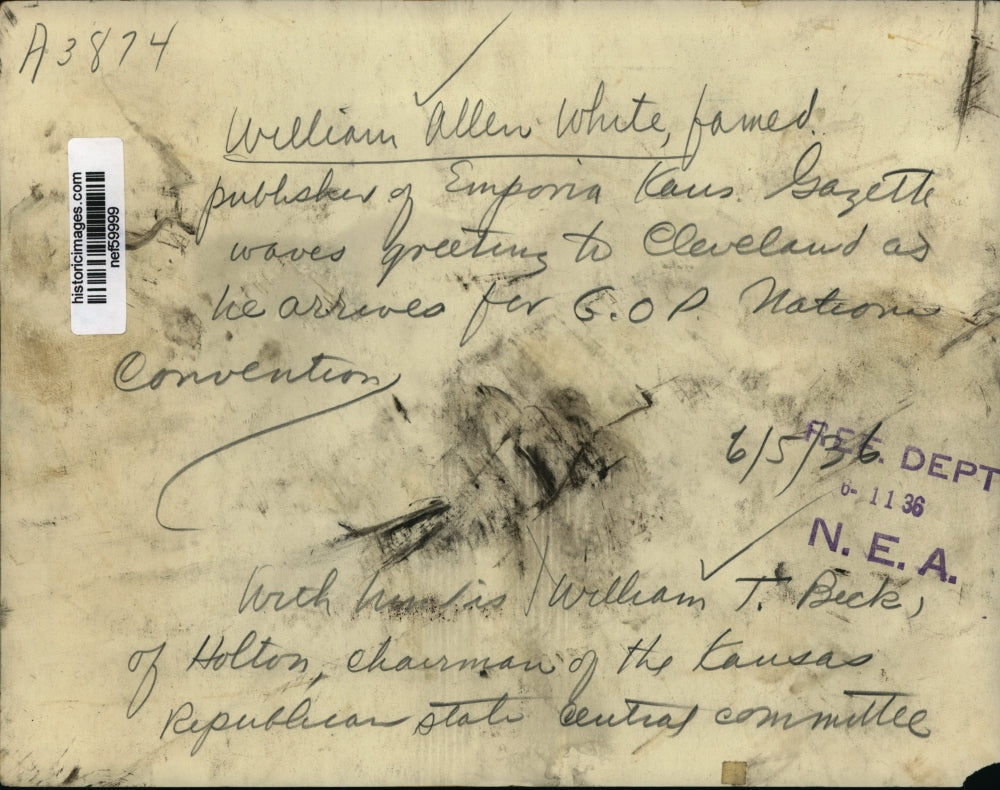 A3874
William Allen White, famed
publisher of Emporia Kans. Gazette
waves greeting to Cleveland as
he arrives for G.O.P National
Convention
historicimages.com
nef59999
6/5/36
REF. DEPT
6- 11 36
N. E. A.
With him is William T. Beck,
of Holton, chairman of the Kansas
Republican state central committee